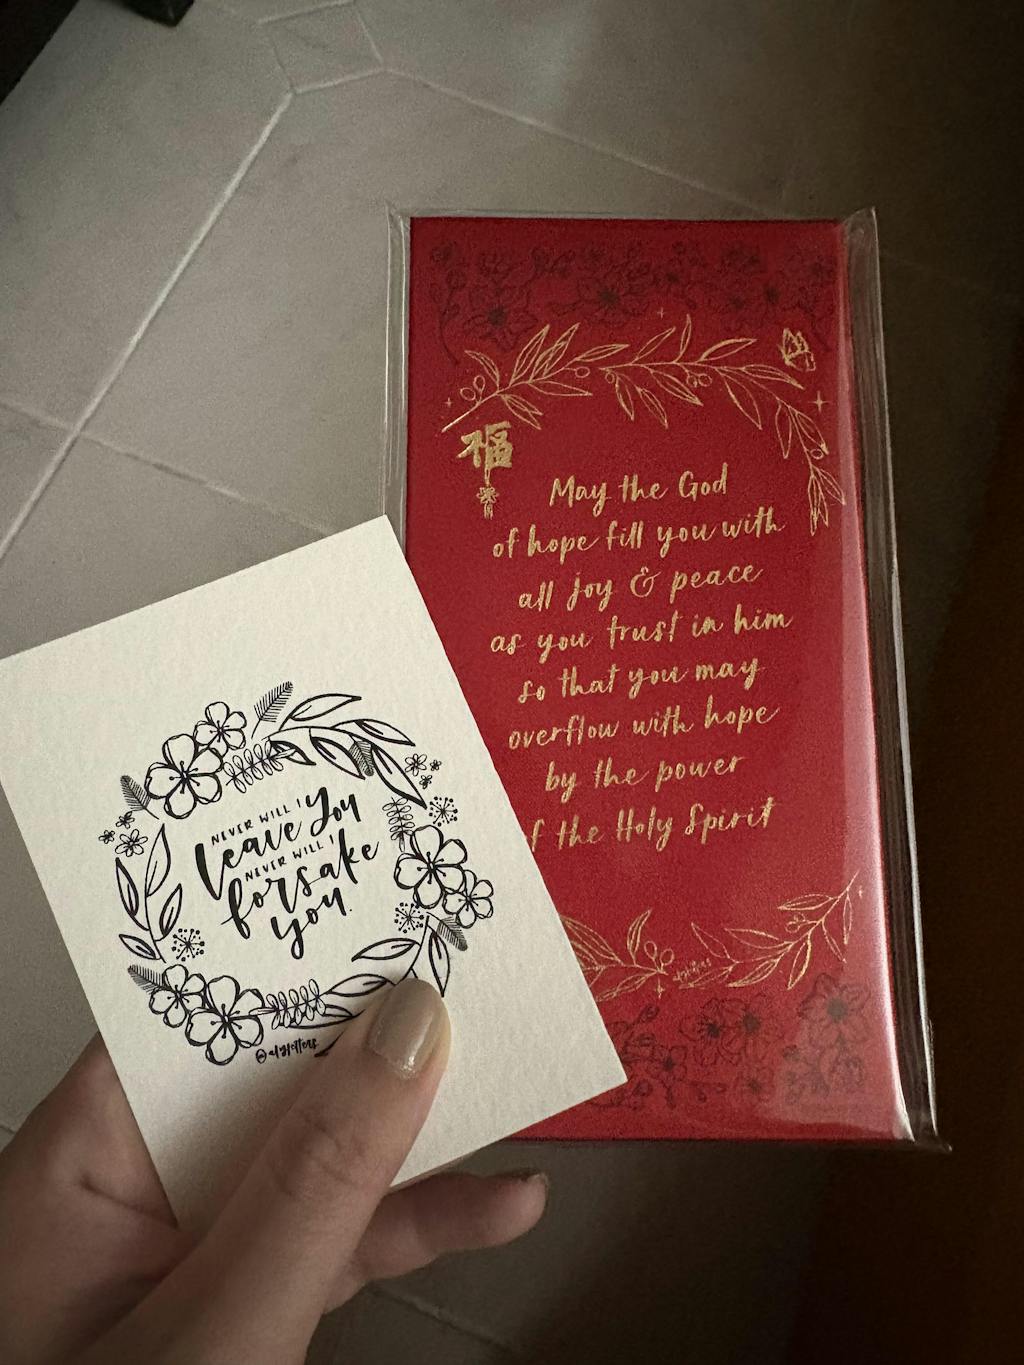 NEVER WILL I
leave you
NEVER WILL I
forsake
you.
福
May the God
of hope fill you with
all joy & peace
as you trust in him
so that you may
overflow with hope
by the power
of the Holy Spirit